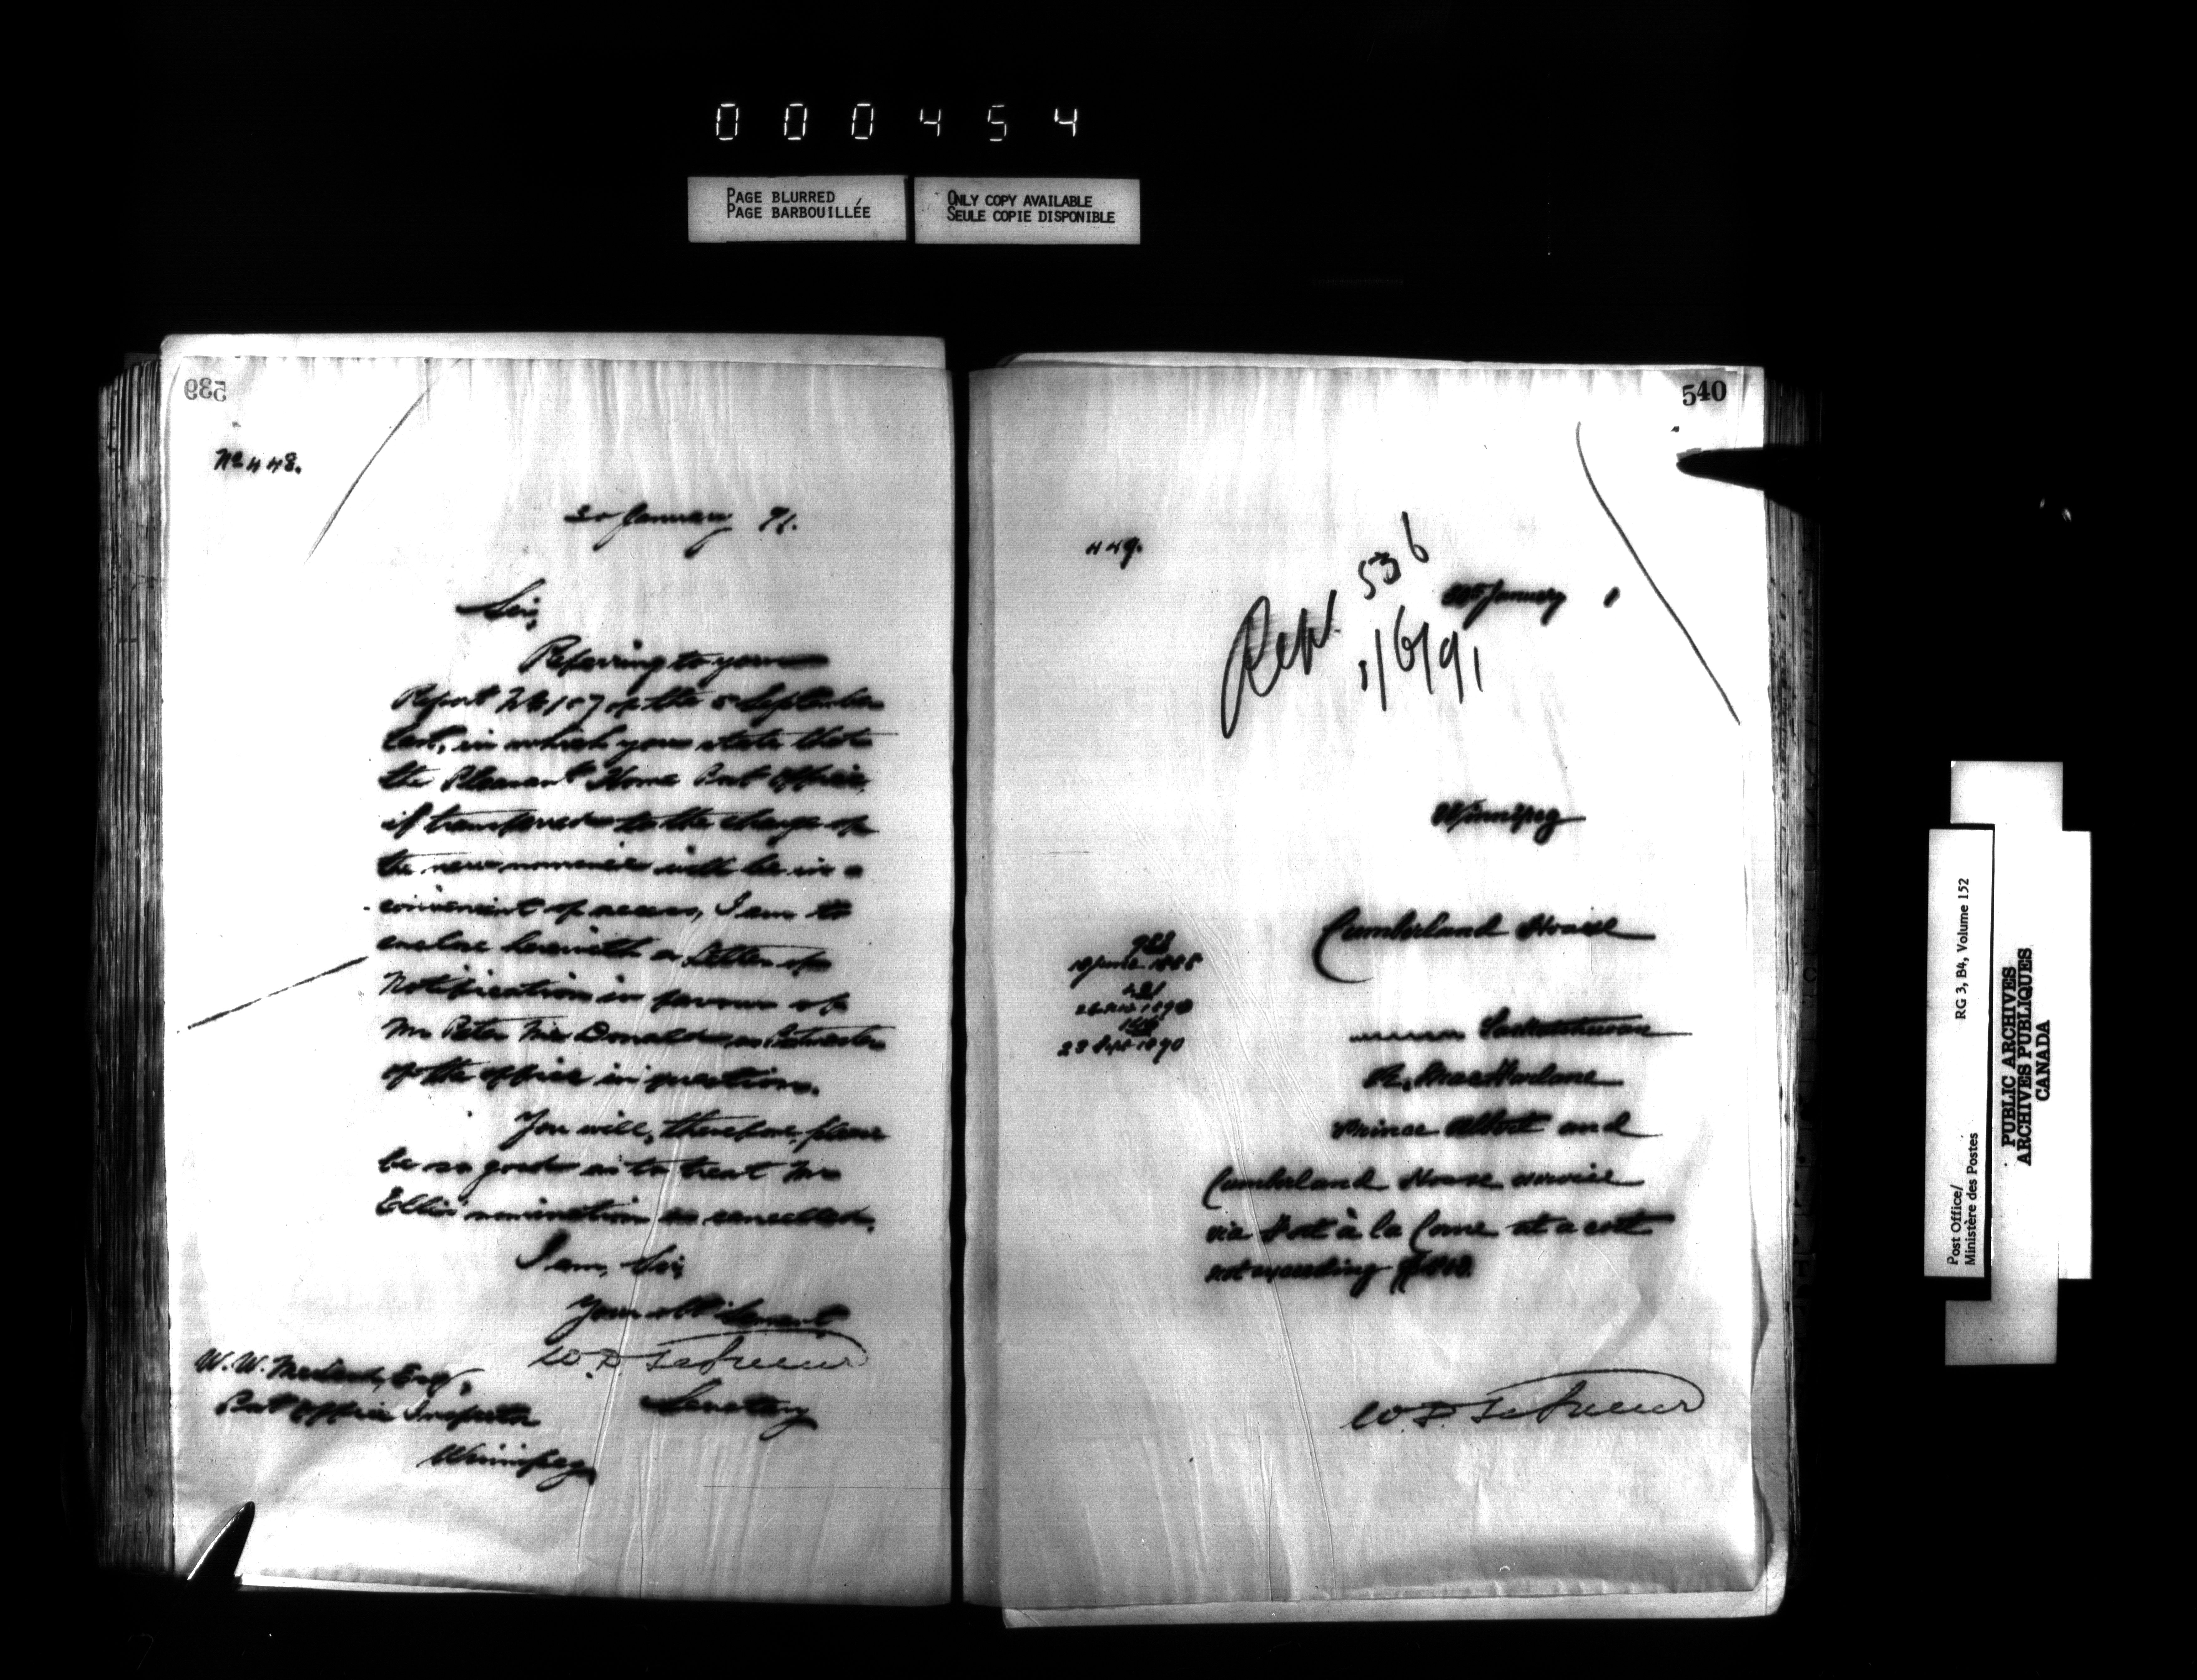 000454
PAGE BLURRED
PAGE BARBOUILLÉE
ONLY COPY AVAILABLE
SEULE COPIE DISPONIBLE
539
No 448.
20 January 91.
Sir,
Referring to your
Report No 157 of the 5 September
last, in which you state that
the Pleasant Home Post Office,
if transferred to the charge of
the new nominee will be in a
convenient of access, I am to
enclose herewith a Letter of
Notification in favour of
Mr Peter McDonald as Postmaster
of the office in question.
You will, therefore, please
be so good as to treat Mr
Ellis' nomination as cancelled.
I am, Sir,
Your obt Servant
W. D. LeSueur
Secretary
W. W. McLeod, Esq,
Post Office Inspector
Winnipeg
540
449.
Rep. 536
1/6/91
January 1
Winnipeg
Cumberland House
988
18 June 1885
1890
23 Sept 1890
Saskatchewan
R. MacFarlane
Prince Albert and
Cumberland House service
via Fort à la Corne at a cost
not exceeding
W. D. LeSueur
Post Office/
Ministère des Postes
RG 3, B4, Volume 152
PUBLIC ARCHIVES
ARCHIVES PUBLIQUES
CANADA